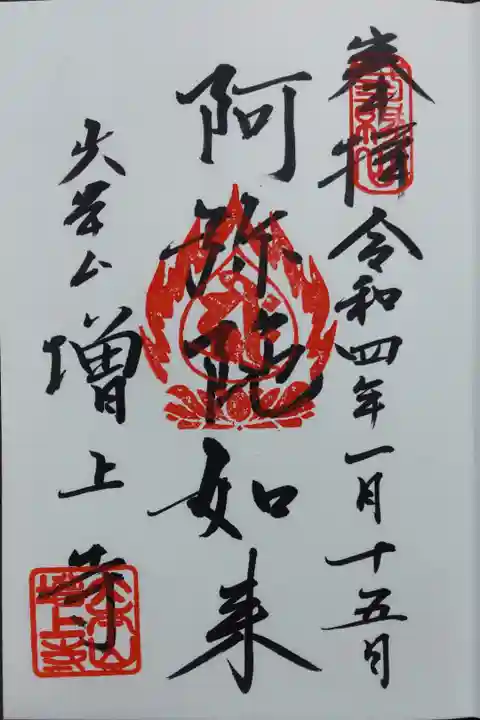 奉拝 令和四年一月十五日
阿弥陀如来
大本山 増上寺